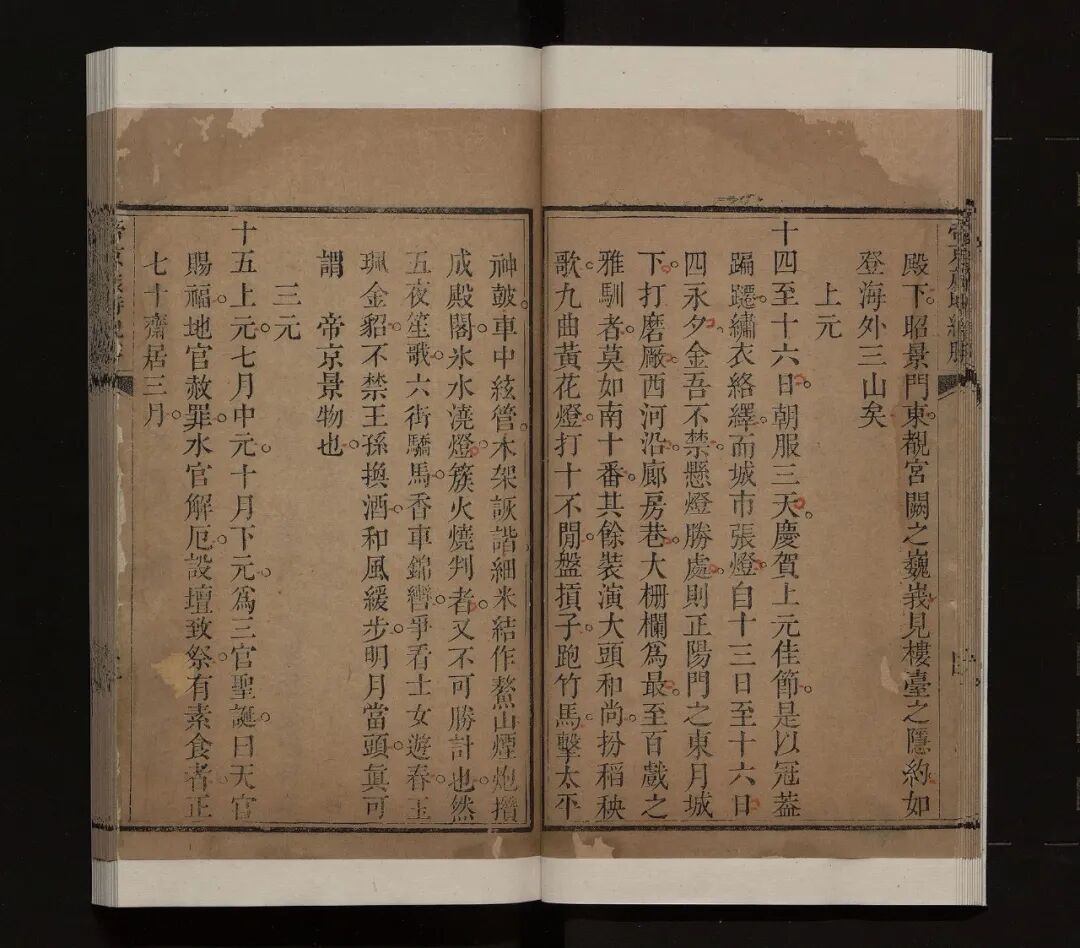 殿下昭景門東觀宮闕之巍峩見樓臺之隱約如
登海外三山矣
上元
十四至十六日朝服三天慶賀上元佳節是以冠蓋
蹁躚繡衣絡繹而城市張燈自十三日至十六日
四永夕金吾不禁懸燈勝處則正陽門之東月城
下打磨廠西河沿廊房巷大柵欄爲最至百戲之
雅馴者莫如南十番其餘裝演大頭和尚扮稻秧
歌九曲黃花燈打十不閒盤摃子跑竹馬擊太平
神鼓車中絃管木架詼諧細米結作鰲山煙炮攢
成殿閣氷水澆燈簇火燒判者又不可勝計也然
五夜笙歌六街驕馬香車錦轡爭看士女遊春玉
珮金貂不禁王孫換酒和風緩步明月當頭眞可
謂 帝京景物也
三元
十五上元七月中元十月下元爲三官聖誕曰天官
賜福地官赦罪水官解厄設壇致祭有素食者正
七十齋居三月